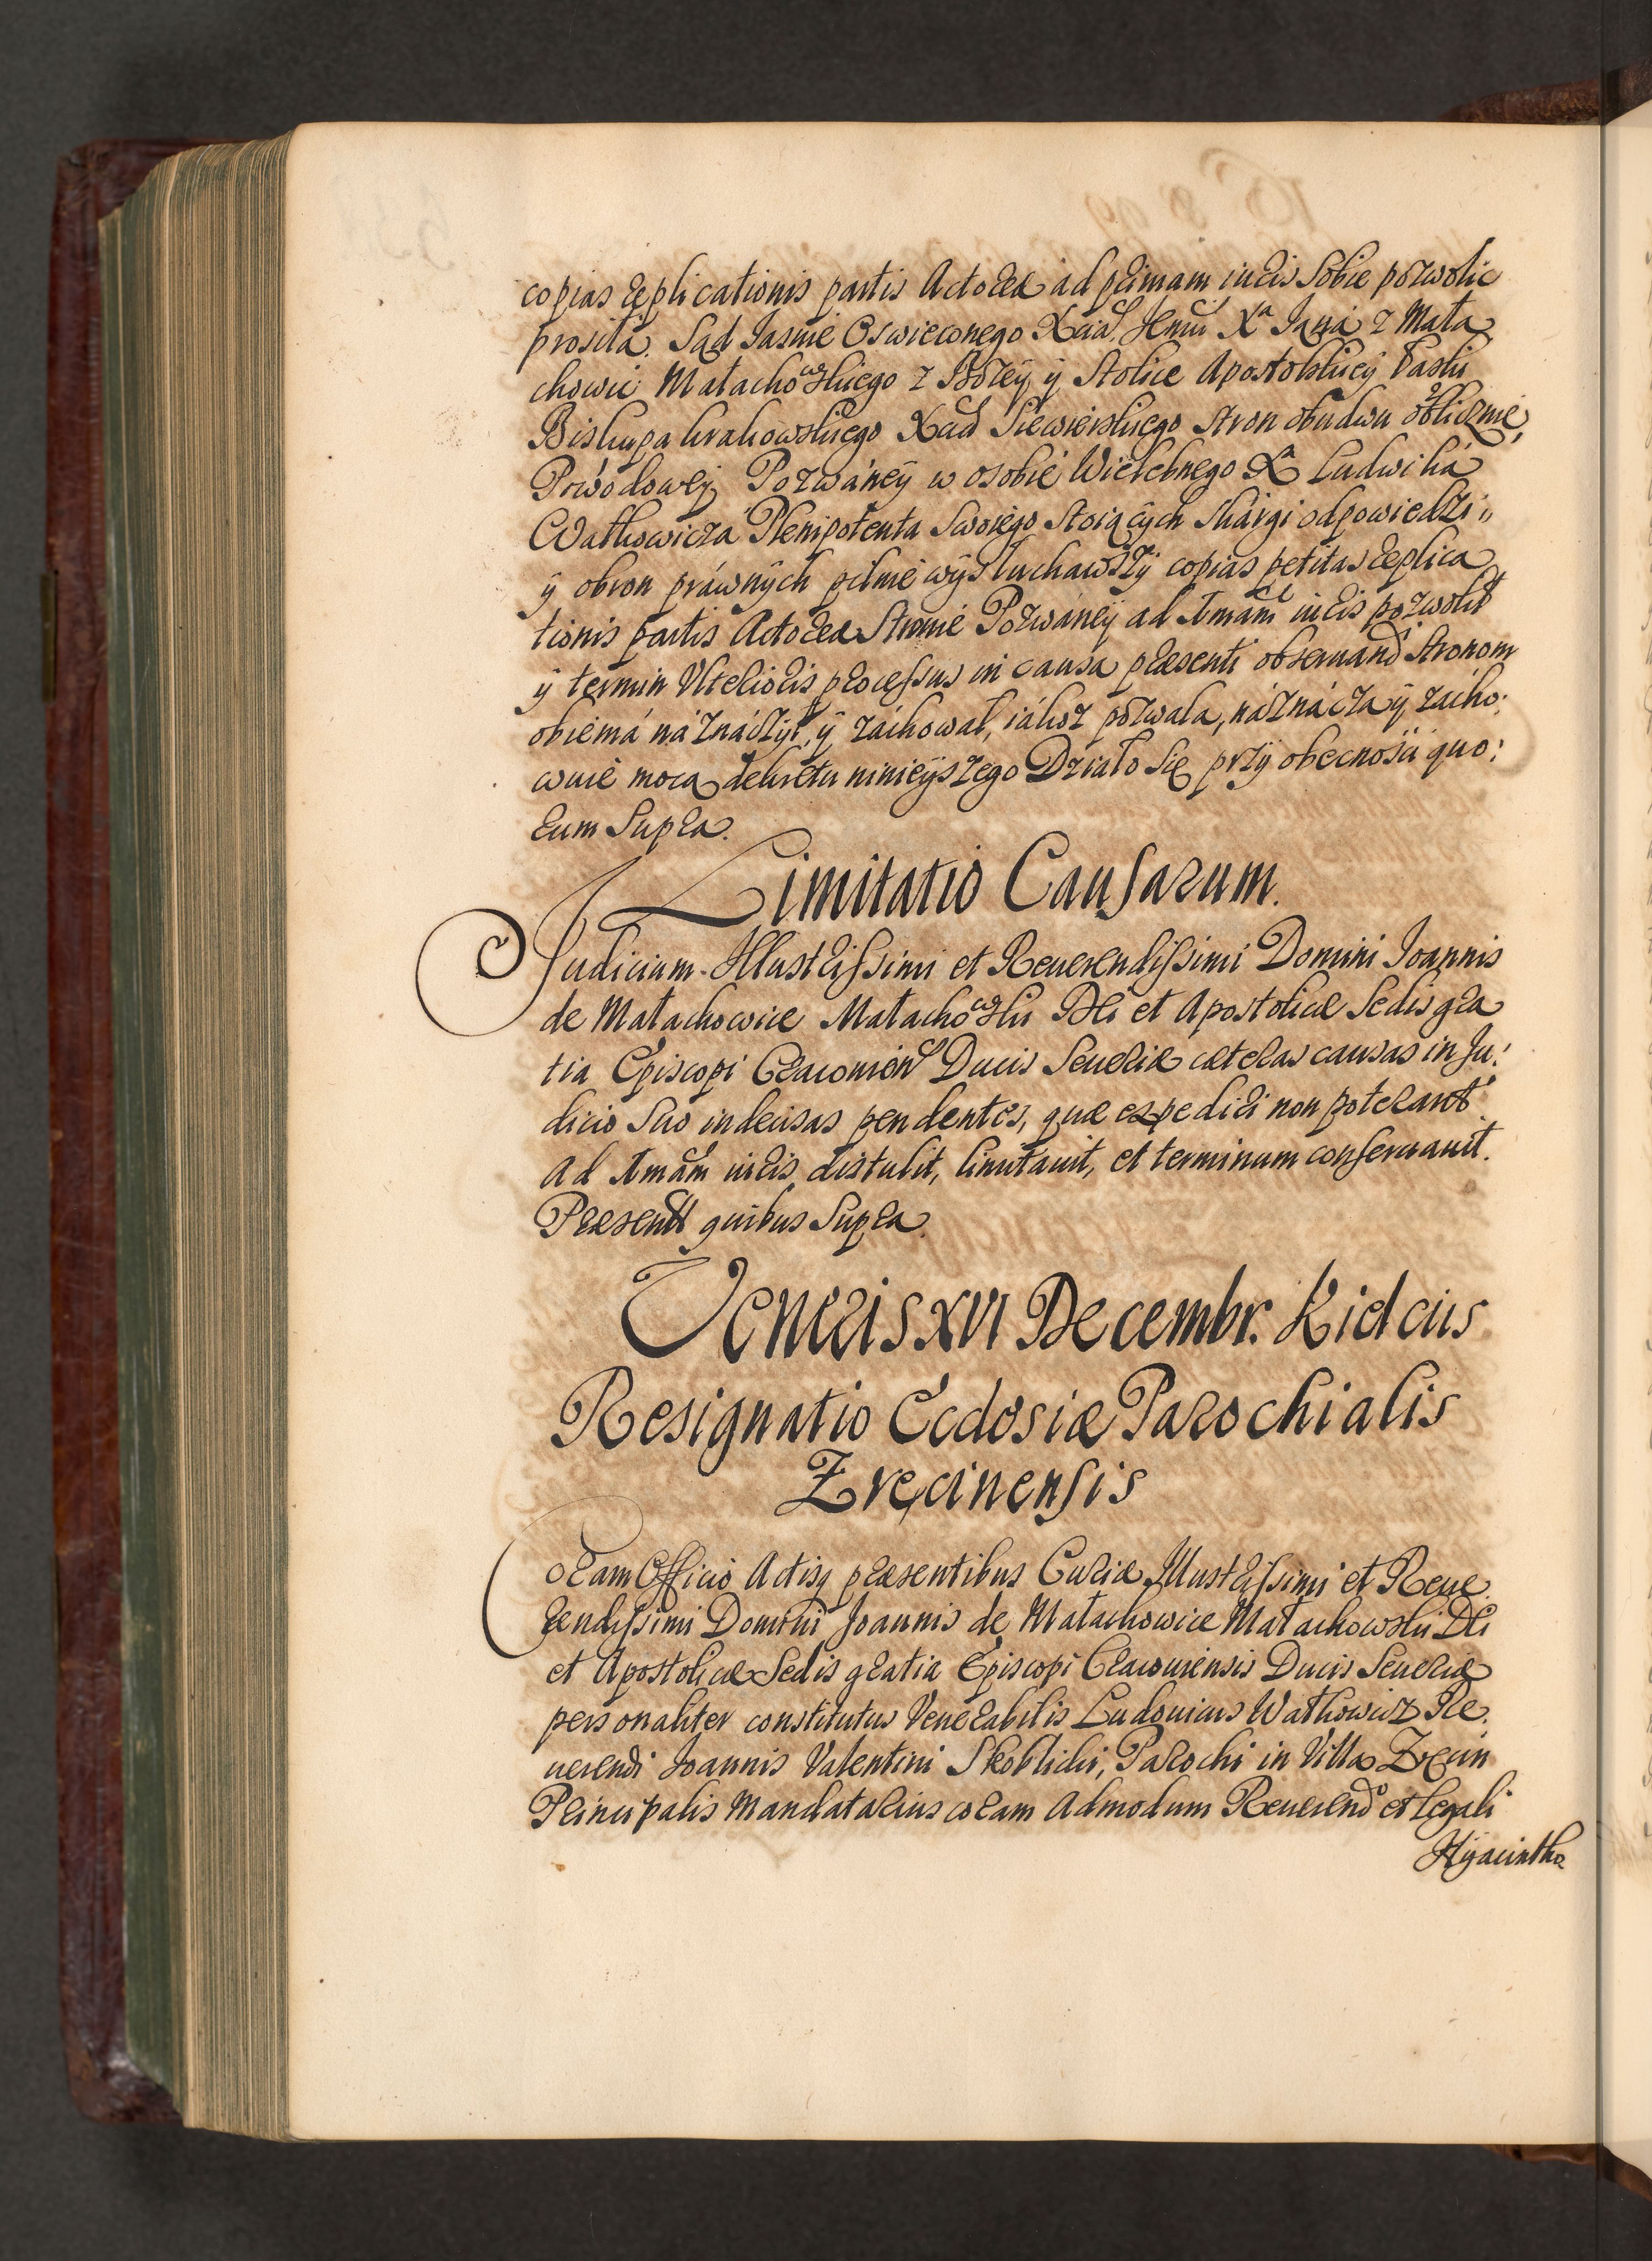 copias replicationis partis Actorea ad primam iuris Sobie pozwolic
prosiła. Sąd Jasnie Oswieconego Xcia Jmci Xa Jana z Mała
chowic Małachowskiego z Bozey y Stolice Apostolskiey łaski
Biskupa krakowskiego Xcia Siewierskiego stron obudwu oblicznie,
Powodowey Pozwáney w osobie Wielebnego Xa Ludwiká
Wathowicza Plenipotenta swoiego stoiących skárgi odpowiedzi
ÿ obron práwnÿch pilnie wÿsłuchawszÿ copias petitas replica
tionis partis Actorea Stronie Pozwáneÿ ad 1mam iuris pozwolił
ÿ termin Vlterioris processus in causa præsenti obseruand stronom
obiema náznáczył, ÿ záchował, iákoz pozwala, náznácza ÿ zácho:
wuie mocą dekretu ninieÿszego Działo Się przÿ obecnosci quo:
rum Supra.
Limitatio Causarum.
Judicium Illustrissimi et Reuerendissimi Domini Joannis
de Małachowice Małachowski Dei et Apostolicæ Sedis gra
tia Episcopi Cracouien Ducis Seueriæ cæteras causas in Ju:
dicio Suo indecisas pendentes, quæ expediri non poterant
ad 1mam iuris distulit, limitauit, et terminum conseruauit.
Præsentt quibus Supra.
Veneris XVI Decembr. Kielciis
Resignatio Ecclesiæ Parochialis
Zręcinensis
Coram Officio Actisq præsentibus Curiæ Illustrissimi et Reue
rendissimi Domini Joannis de Małachowice Małachowski Dei
et Apostolicæ Sedis gratia Episcopi Cracouiensis Ducis Seueriæ
personaliter constitutus Venerabilis Ludouicus Wathowicz Re
uerendi Joannis Valentini Skoblicki, Parochi in Villa Zręcin
Principalis Mandatarius coram Admodum Reuerendo et Legali
Hÿacintho